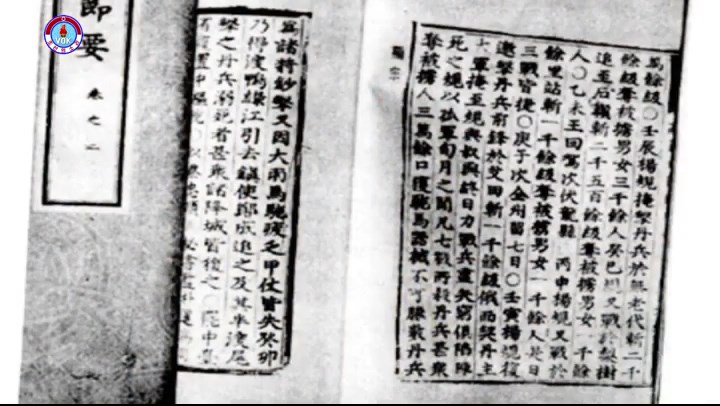 VOK
節要
卷之二
萬餘級○壬辰楊規掩擊丹兵於無老代斬二千
餘級奪被擄男女三千餘人癸巳規又戰於梨樹
追至石嶺斬二千五百餘級奪被擄男女一千餘
人○乙未王回駕次伏龍縣 丙申楊規又戰於
餘里站斬一千餘級奪被擄男女一千餘人是日
三戰皆捷○庚子次全州留七日○壬寅楊規復
邀擊丹兵前鋒於艾田斬一千餘級俄而契丹主
大軍掩至規與叔興終日力戰兵盡矢窮俱陷陣
死之規以孤軍旬月之間凡七戰所殺丹兵甚衆
奪被擄人三萬餘口獲駝馬器械不可勝數丹兵
顯宗
爲諸將鈔擊又因大雨馬駝疲乏甲仗皆失癸卯
乃得渡鴨綠江引去鎭使鄭成追之及其半渡尾
擊之丹兵溺死者甚衆諸降城皆復之○罷中臺